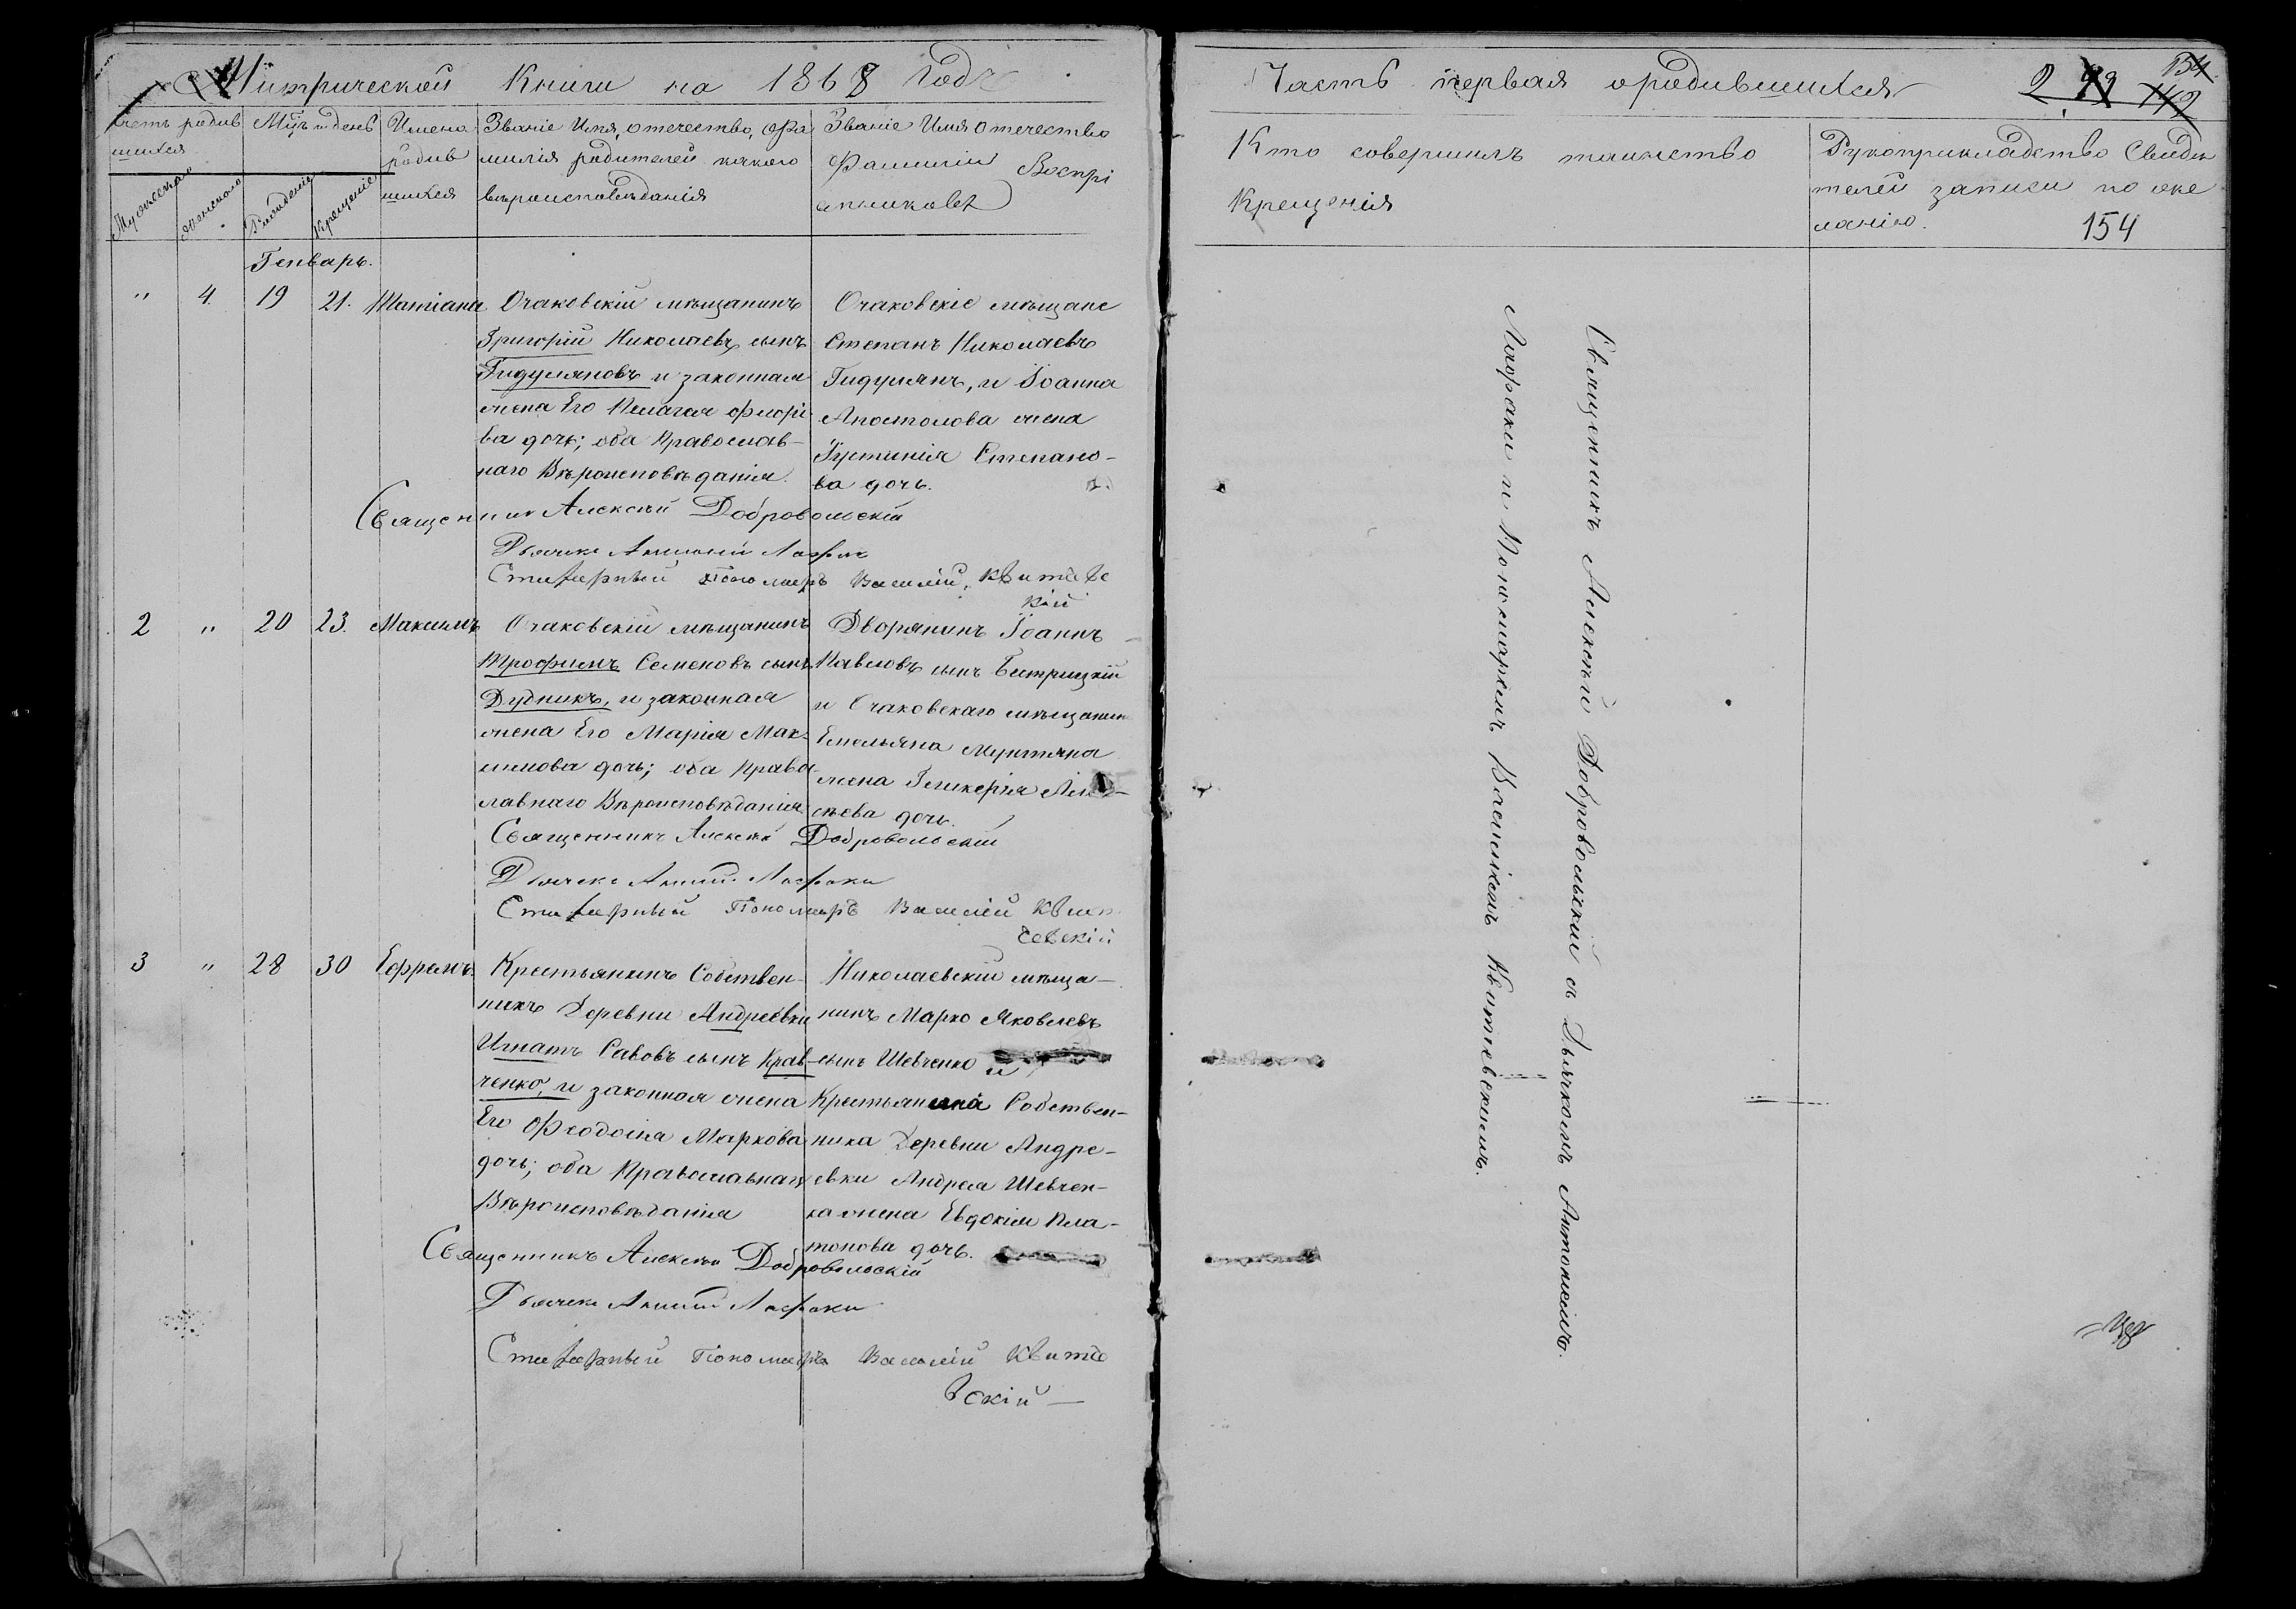 Метрической Книги на 1868 Годъ
Часть первая о родившихся
2
154
Счетъ родив
шихся
Мужескаго
женскаго
Мѣц. и день
Рожденіе
Крещеніе
Имена
родив
шихся
Званіе Имя, отечество, Фа
милія родителей какого
вѣроисповѣданія
Званіе Имя отечество
Фамиліи Воспрі
емниковъ
Кто совершилъ таинство
Крещенія
Рукоприкладство Свидѣ
телей записи по же
ланію.
154
Генварь.
" 4. 19 21. Татіана
Очаковскій мѣщанинъ
Григорій Николаевъ сынъ
Гидуляновъ и законная
жена Его Пелагея Флорі
ва дочь; оба Православ-
наго Вѣроисповѣданія.
Очаковскіе мѣщане
Степанъ Николаевъ
Гидулянъ, и Іоанна
Апостолова жена
Іустинія Степано-
ва дочь.
Священникъ Алексѣй Добровольскій
Дьячекъ Антоній Лафаки
Стихарный Пономарь Василій Квитке
кій
2 " 20 23. Максимъ
Очаковскій мѣщанинъ
Трофимъ Семеновъ сынъ
Дудникъ, и законная
жена Его Марія Мак-
симова дочь; оба Право
славнаго Вѣроисповѣданія
Дворянинъ Іоаннъ
Павловъ сынъ Бытрицкій
и Очаковскаго мѣщанин
Емельяна Мунтяна
жена Гликерія
сѣева дочь.
Священникъ Алексѣй Добровольскій
Дьячекъ Антоній Лафаки
Стихарный Пономарь Василій Квит
чевскій
3 " 28 30 Ефремъ
Крестьянинъ Собствен-
никъ Деревни Андреевки
Игнатъ Савовъ сынъ Крав-
ченко, и законная жена
Его Феодосія Маркова
дочь; оба Православнаго
Вѣроисповѣданія
Николаевскій мѣща-
нинъ Марко Яковлевъ
сынъ Шевченко и
Крестьянина Собствен-
ника Деревни Андре-
евки Андрея Шевчен-
ка жена Евдокія Пла-
тонова дочь.
Священникъ Алексѣй Добровольскій
Дьячекъ Антоній Лафаки
Стихарный Пономарь Василій Квитке
вскій
Священникъ Алексѣй Добровольскій съ Дьячкомъ Антоніемъ
Лафаки и Пономаремъ Василіемъ Квиткевскимъ.